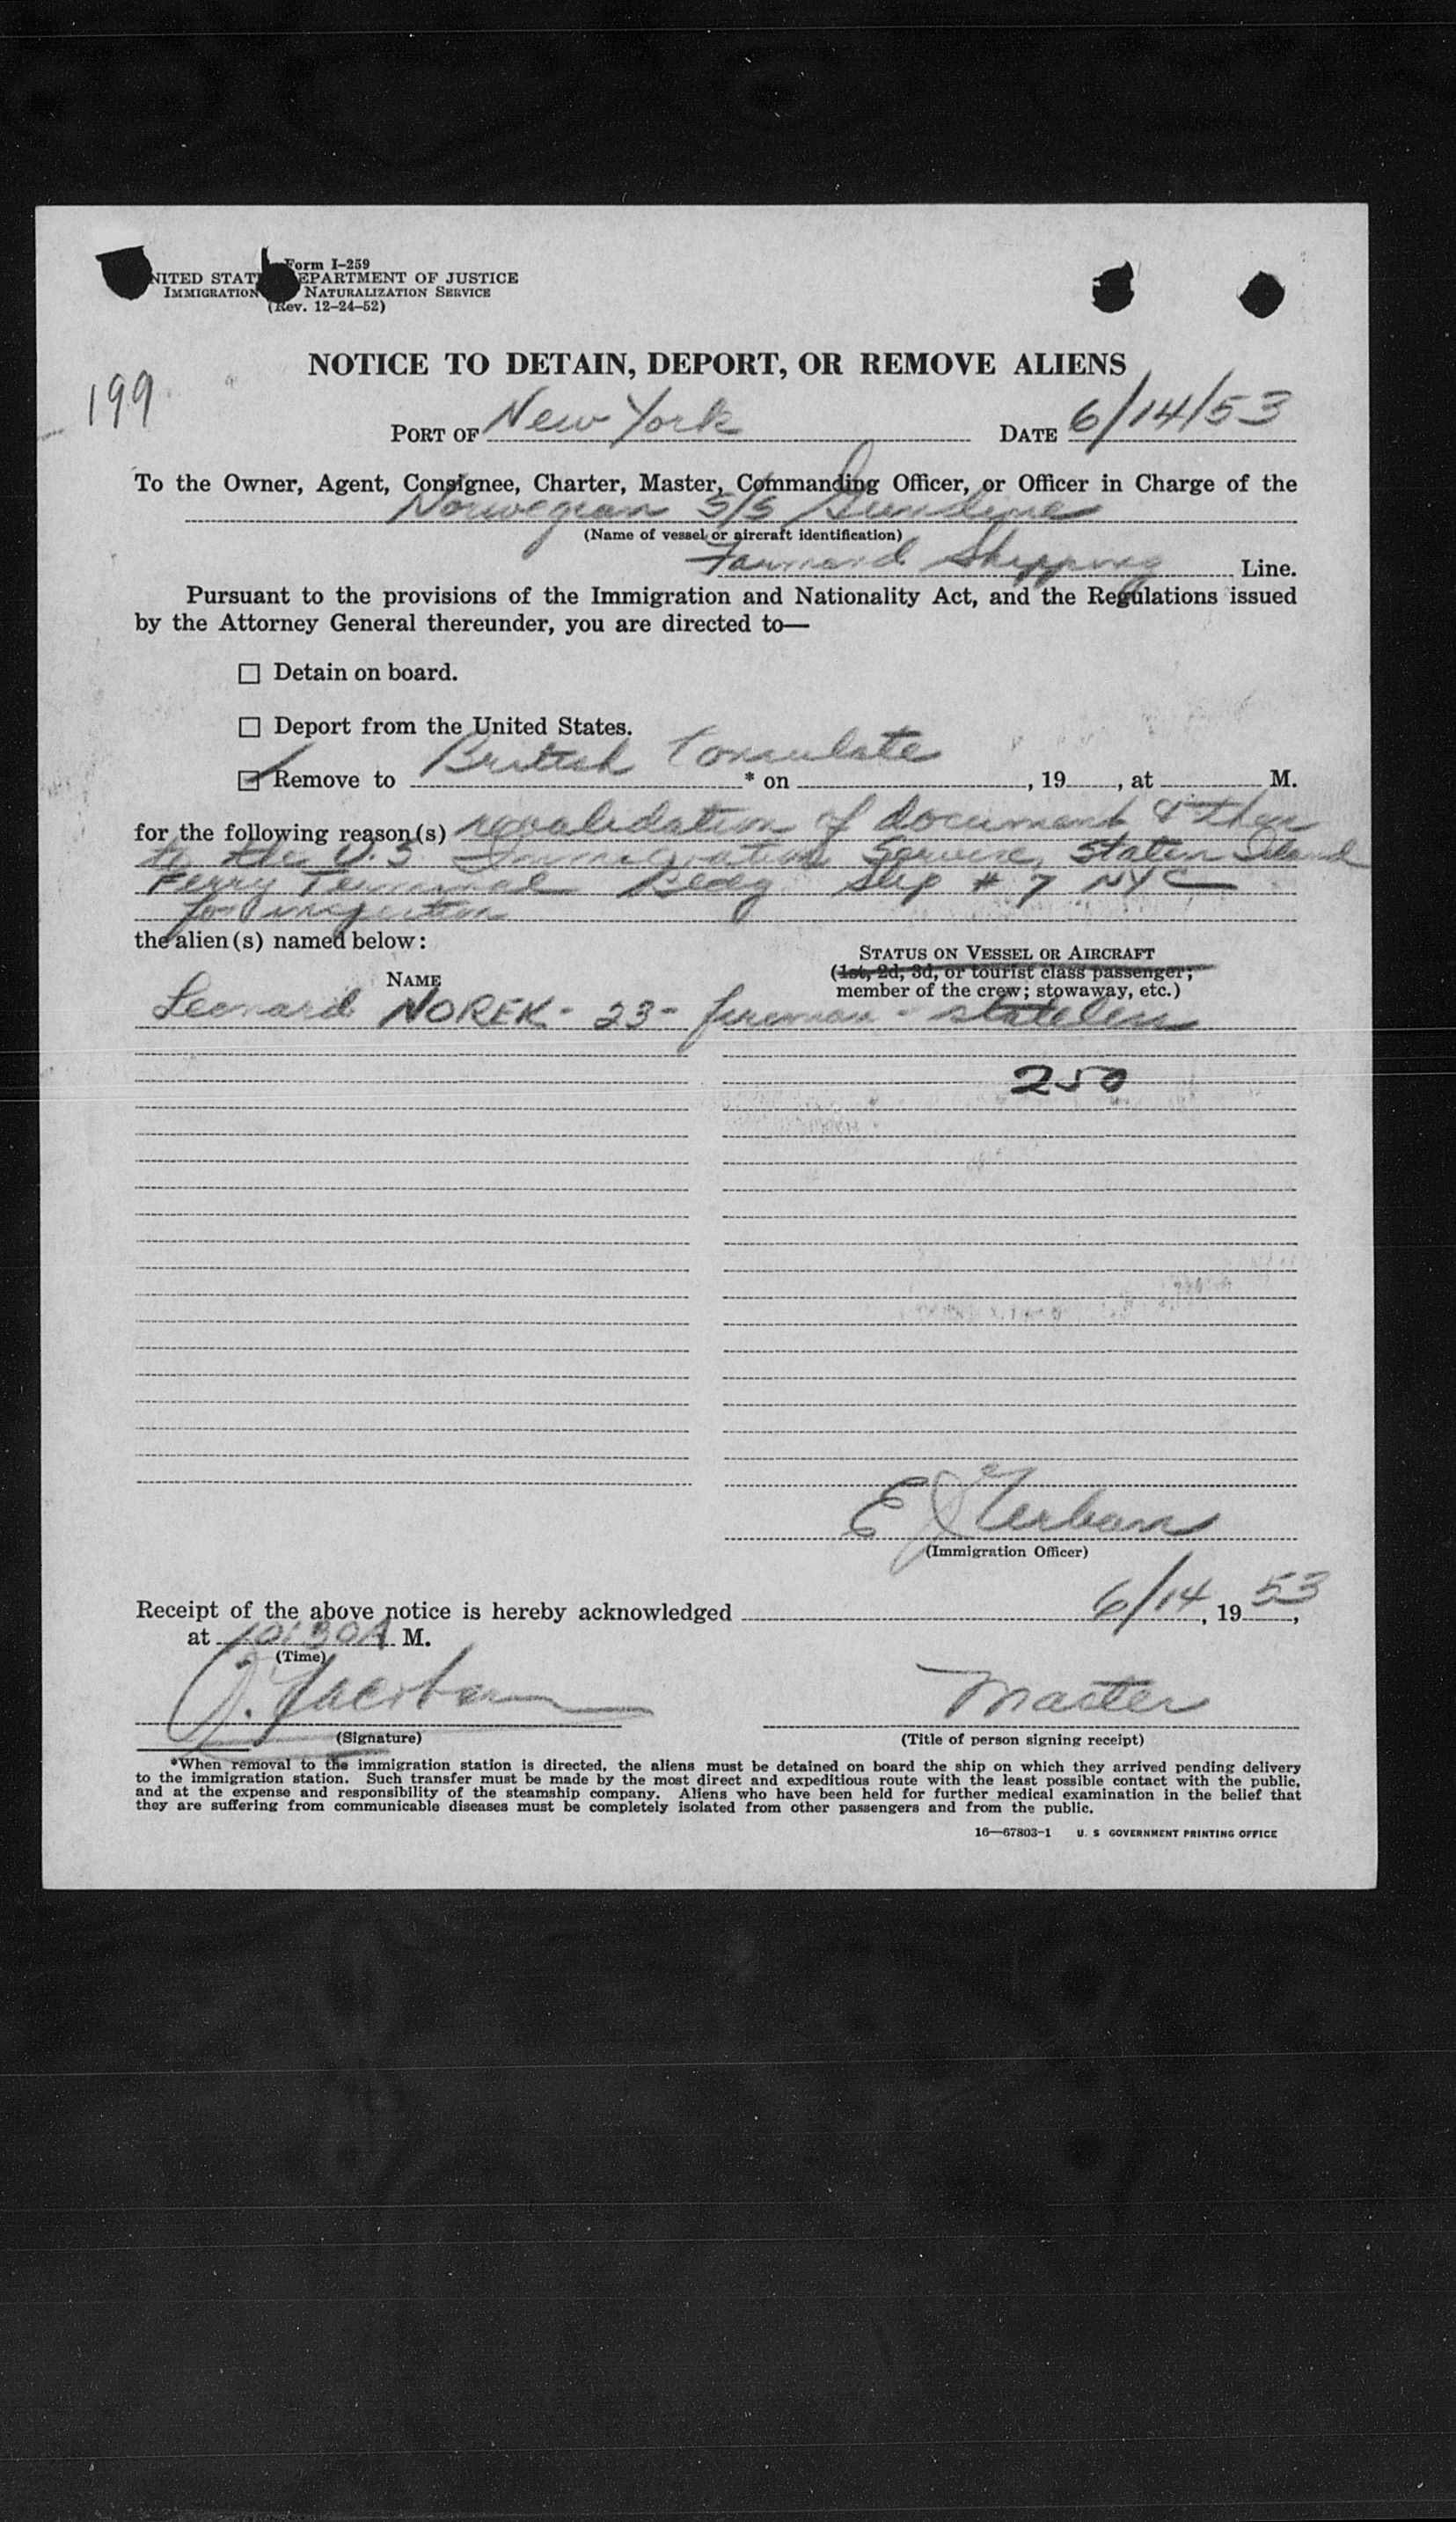 Form I-259
NITED STAT EPARTMENT OF JUSTICE
IMMIGRATION NATURALIZATION SERVICE
(Rev. 12-24-52)
NOTICE TO DETAIN, DEPORT, OR REMOVE ALIENS
199
PORT OF New York DATE 6/14/53
To the Owner, Agent, Consignee, Charter, Master, Commanding Officer, or Officer in Charge of the
Norwegian S/S
(Name of vessel or aircraft identification)
Shipping Line.
Pursuant to the provisions of the Immigration and Nationality Act, and the Regulations issued
by the Attorney General thereunder, you are directed to—
☐ Detain on board.
☐ Deport from the United States.
☑ Remove to British Consulate * on , 19 , at M.
for the following reason(s) revalidation of document & then
to the U.S Immigration Service, Staten Island
Ferry Terminal Bldg Slip # 7 NYC
for inspection
the alien(s) named below:
STATUS ON VESSEL OR AIRCRAFT
NAME
(1st, 2d, 3d, or tourist class passenger;
member of the crew; stowaway, etc.)
Leonard NOREK - 23 - fireman - stateless
250
E J
(Immigration Officer)
Receipt of the above notice is hereby acknowledged 6/14, 1953,
at 10:30A M.
(Time)
J. Jacobsen Master
(Signature) (Title of person signing receipt)
*When removal to the immigration station is directed, the aliens must be detained on board the ship on which they arrived pending delivery
to the immigration station. Such transfer must be made by the most direct and expeditious route with the least possible contact with the public,
and at the expense and responsibility of the steamship company. Aliens who have been held for further medical examination in the belief that
they are suffering from communicable diseases must be completely isolated from other passengers and from the public.
16—67803-1 U. S GOVERNMENT PRINTING OFFICE